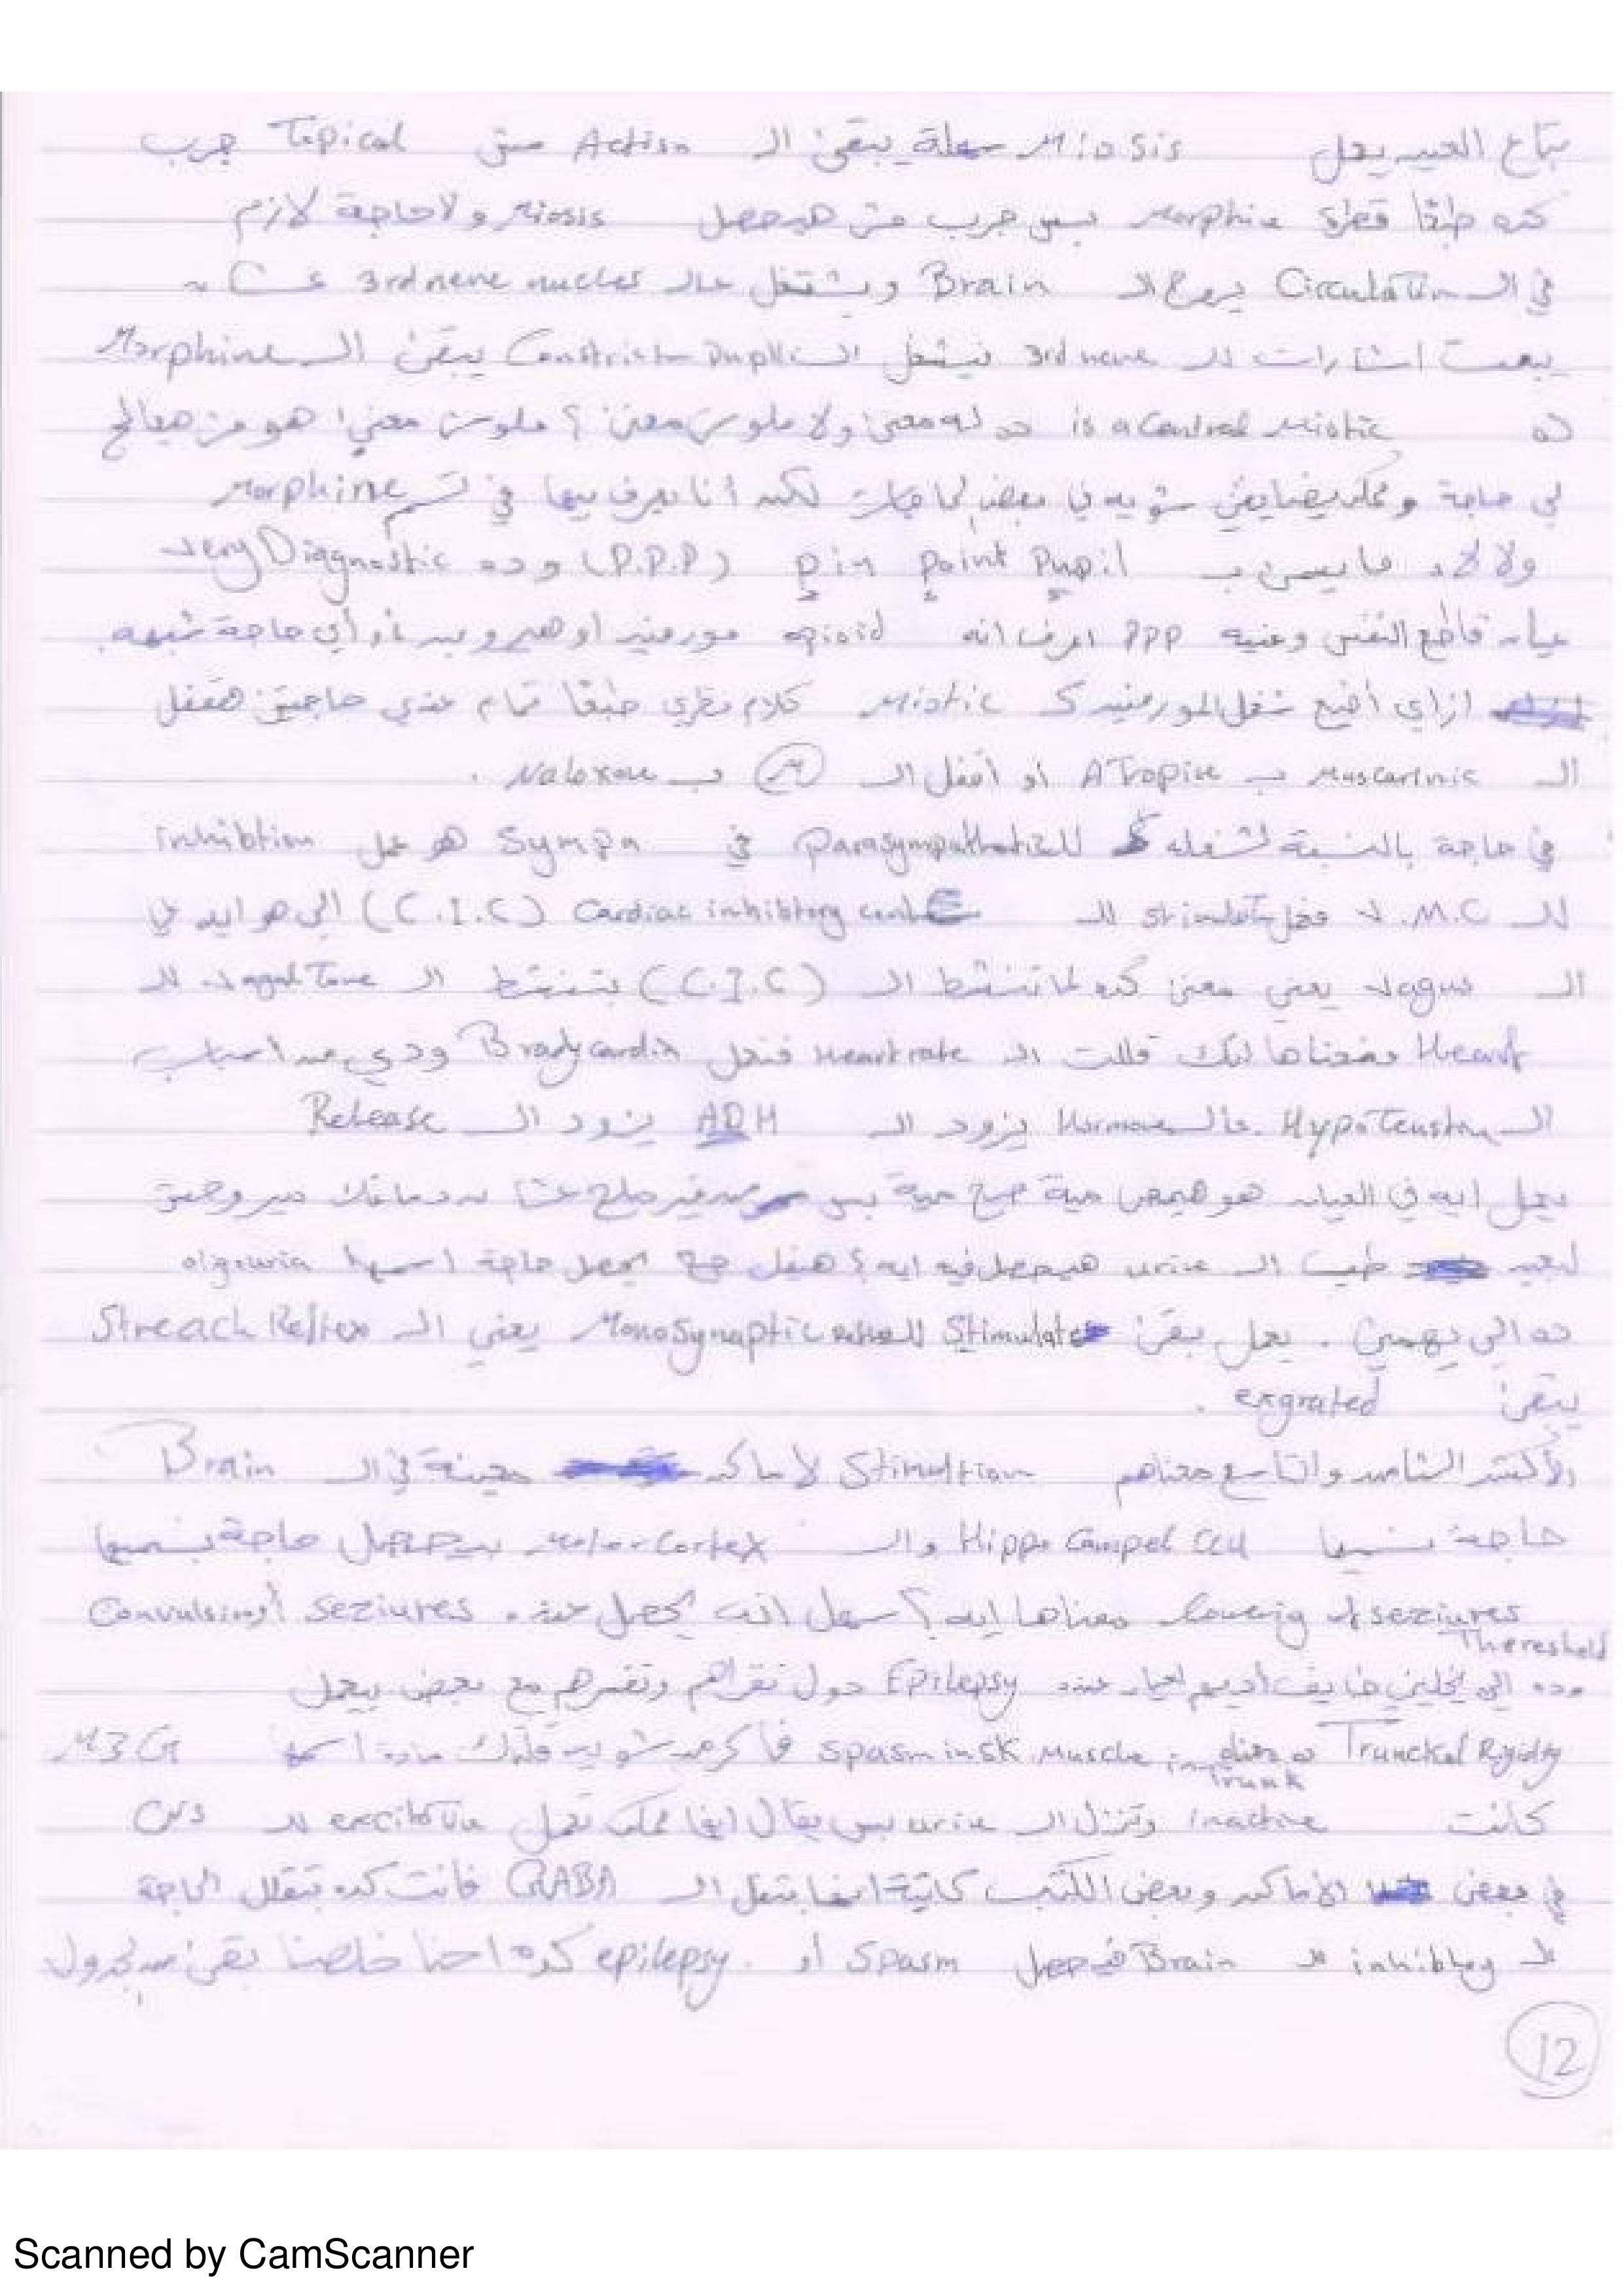 بتاع العين يعمل Miosis سهلة يبقى ال Action مش Topical جرب
كده طبقا قطرة Morphine بس جرب مش هيحصل Miosis ولا حاجة لازم
في ال Circulation يروح ال Brain ويشتغل عال 3rd nerve nucles عشان
يبعت اشارات لل 3rd nerve فيشغل ال Constrictor pupillae يبقى ال Morphine
ده is a Central Miotic ده له معنى ولا ملوش معنى؟ ملوش معنى! هو مش هيعالج
لي حاجة وممكن يضايقني شويه في بعض الحاجات لكن أنا بعرف بيها في تسمم Morphine
ولا لا، ما يسمى بـ Pin point Pupil (P.P.P) وده very Diagnostic
عيان قاطع النفس وعنيه PPP اعرف انه opioid مورفين او هيروين او أي حاجة شبهه.
ازاي أضيع شغل المورفين ك Miotic كلام نظري طبقا تمام عندي حاجتين هقفل
ال Muscarinic ب ATropine أو أقفل ال M ب Naloxone .
في حاجة بالنسبة لشغله للـ Parasympathatic في Sympa هو عمل inhibtion
لل V.M.C فعمل stimulation لل Cardiac inhibitory center (C.I.C) الي هو ايه في
ال vagus يعني معنى كده لما تنشط ال (C.I.C) بتنشط ال vagal Tone لل
Heart ومعناها انك قللت ال Heart rate فتعمل Bradycardia ودي من اسباب
ال HypoTenston. عال Hormones يزود ال ADH يزود ال Release
يعمل ايه في العيان هو هيمص مية صح مية بس من غير ملح عشان دماغك ميروحش
لبعيد طيب ال urine هيحصل فيه ايه؟ هيقل صح يحصل حاجة اسمها oigouria
ده الي يهمني . يعمل بقى Stimulate للـ MonoSynaptic يعني ال Streach Reflex
يبقى exgrated .
الأكشن الثامن والتاسع معناهم Stimultion لاماكن معينة في ال Brain
حاجة نسميها Hippo Campel Cell وال Motor Cortex بيحصل حاجة بنسميها
Lowerig of seziures Thereshold معناها ايه؟ سهل انت يحصل عنده seziures أو Convulsing
وده الي يخليني خايف أديهم لعيان عنده Epilepsy دول نقرأهم ونفسرهم مع بعض بيعمل
Trunckal Rigidity ده عبارة spasm in sk. Muscle in Trunk فاكرين شويه قلتلك مادة اسمها M3G
كانت inactive وتنزل ال urine بس يقال انها ممكن تعمل excitation لل CNS
في بعض الاماكن وبعض الكتب كاتبة انها بتقل ال GABA فانت كده بتقلل الحاجة
ال inhibitory لل Brain فيحصل Spasm أو epilepsy. كده احنا خلصنا بقى من الجدول
12
Scanned by CamScanner